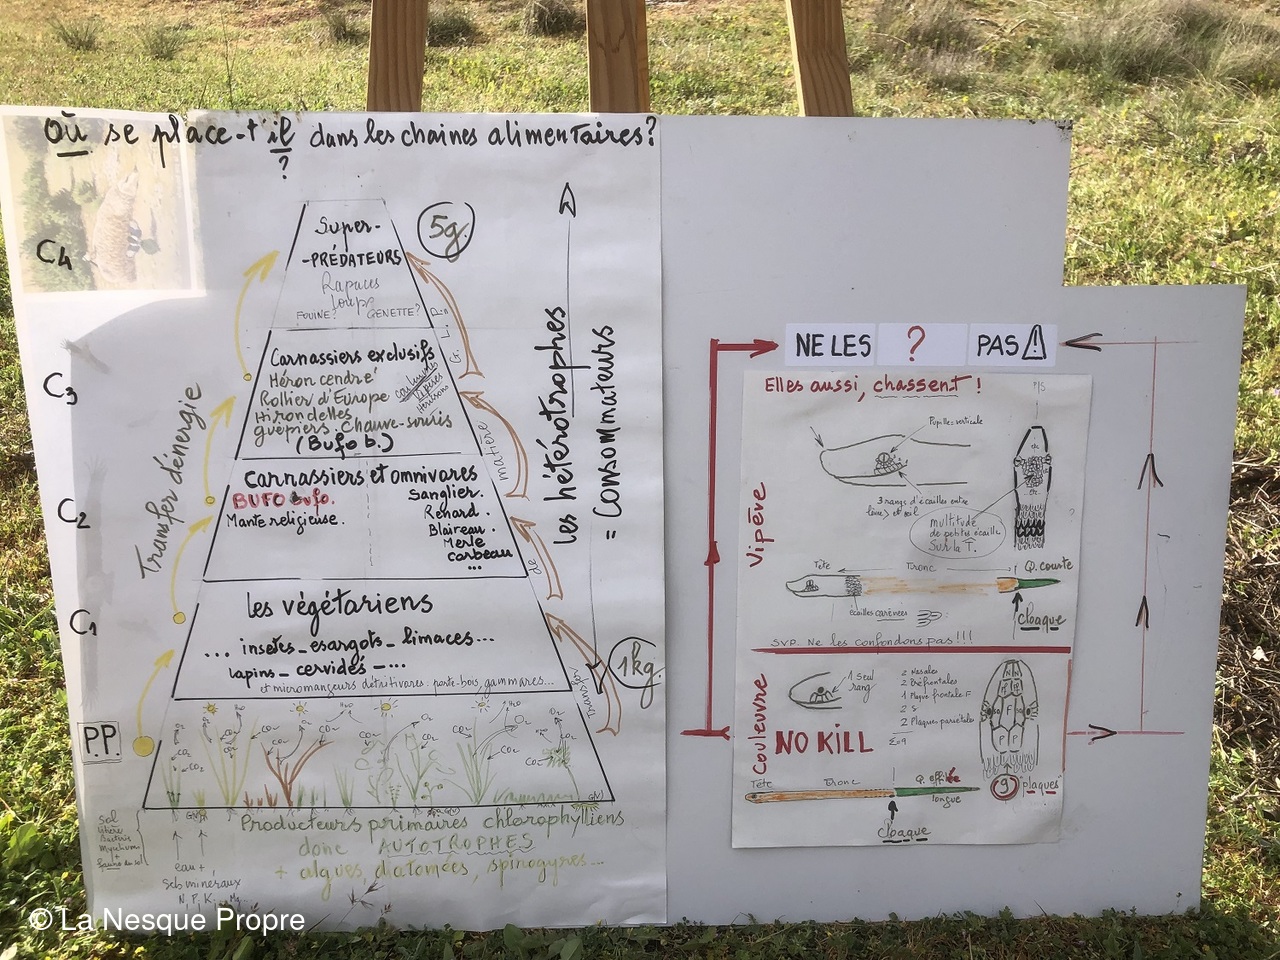 Où se place-t'il dans les chaines alimentaires?
?
C4
Super-
-PRÉDATEURS
Rapaces
loups
FOUINE? GENETTE?
5g.
C3
Carnassiers exclusifs
Héron cendré
Rollier d'Europe
Hirondelles
guêpiers. Chauve-souris
(Bufo b.)
couleuvres
Vipères
Hérissons
C2
Carnassiers et omnivores
BUFO bufo.
Mante religieuse.
Sanglier.
Renard.
Blaireau.
Merle
corbeau
...
C1
les végétariens
... insectes_esargots_limaces...
lapins_cervidés_...
et micromangeurs détritivores: porte-bois, gammares...
P.P.
Transfer d'énergie
Transfert de matière
les hétérotrophes
= Consommateurs
1kg.
H2O
O2
CO2
Producteurs primaires chlorophylliens
donc AUTOTROPHES
+ algues, diatomées, spirogyres...
Sol
litière
Bactéries
Mycelium
+
Faune du sol
eau +
Sels minéraux
N, P, K, Mg
NE LES ? PAS
Elles aussi, chassent !
Vipère
Pupille=verticale
3 rangs d'écailles entre
lèvre et œil
multitude
de petites écailles
Sur la T.
Tête
Tronc
Q. courte
écailles carénées
cloaque
SVP. Ne les confondons pas!!!
Couleuvre
1 seul
rang
2 Nasales
2 Préfrontales
1 Plaque frontale F
2 S
2 Plaques pariétales
Σ=9
NO KILL
Tête
Tronc
Q. effilée
longue
cloaque
9 plaques
©La Nesque Propre